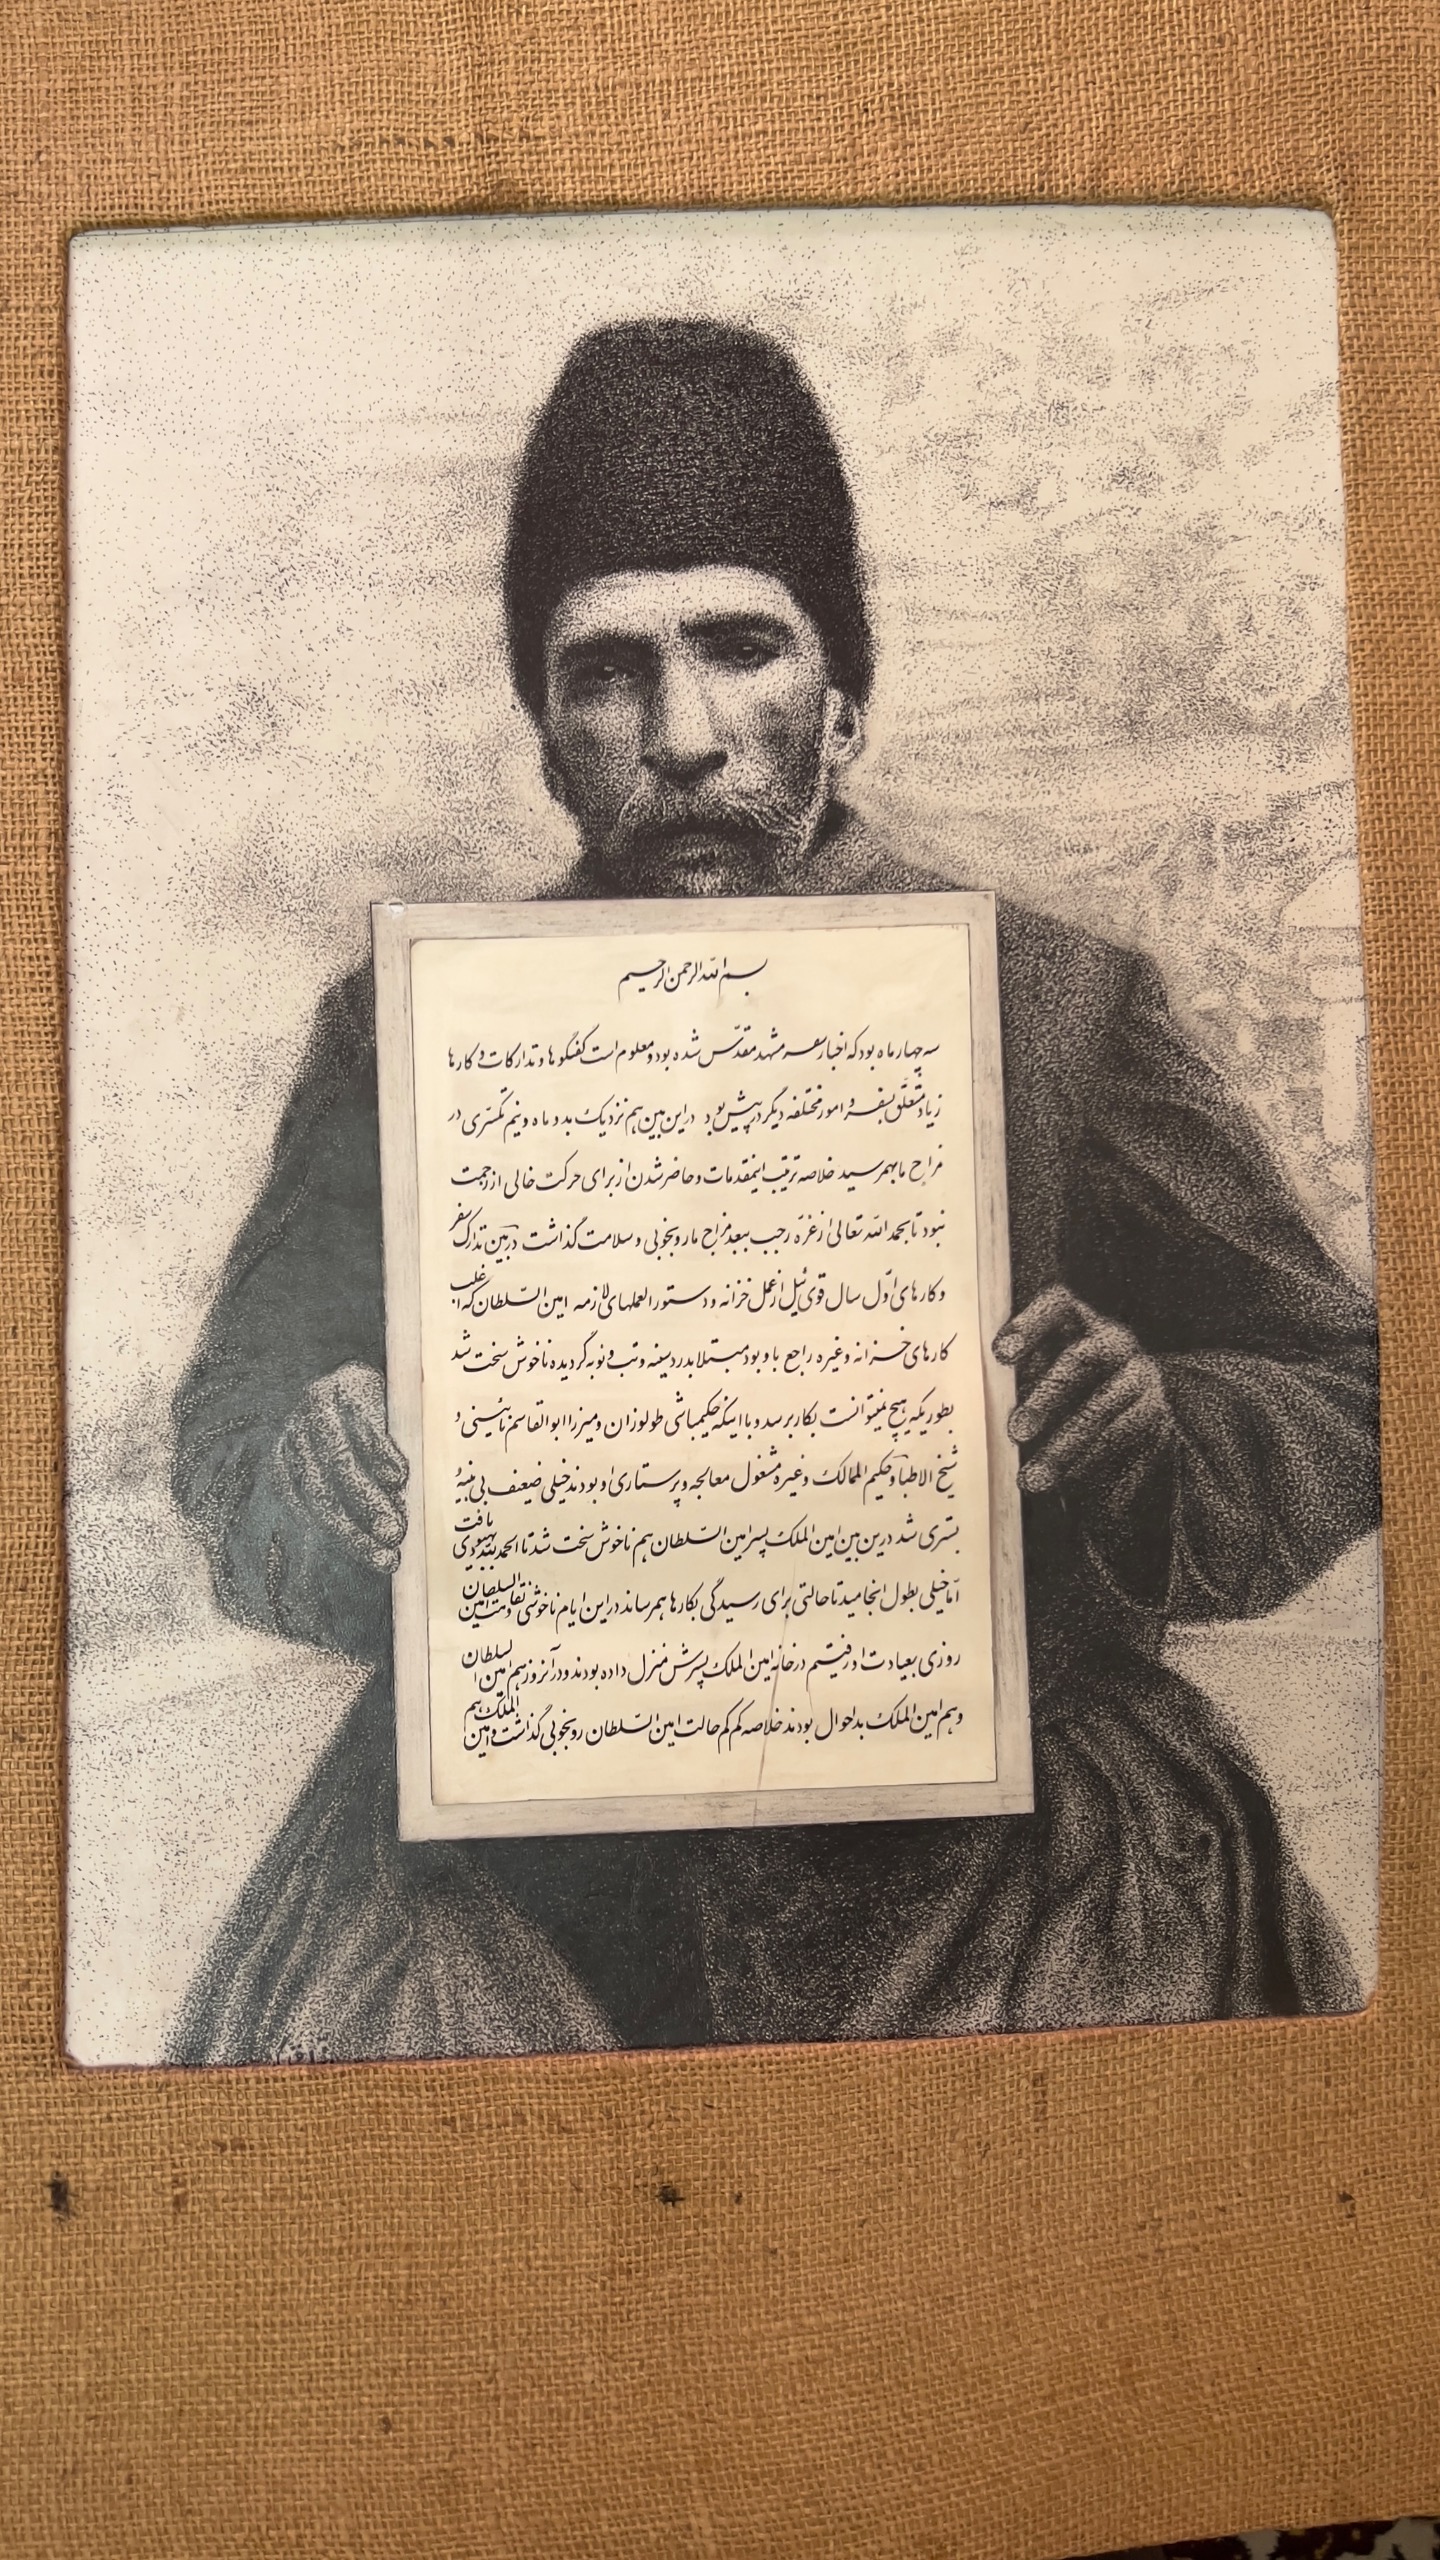 بسم الله الرحمن الرحیم
سه چهار ماه بود که اخبار سفر مشهد مقدّس شده بود و معلوم است گفتگوها و تدارکات و کارها
زیاد متعلّق بسفر و امور مختلفه دیگر در پیش بود در این بین هم نزدیک بدو ماه و نیم تکسّری در
مزاج ما بهمرسید خلاصه ترتیب اینمقدمات و حاضر شدن از برای حرکت خالی از زحمت
نبود تا بحمد الله تعالی از غرّه رجب ببعد مزاج ما رو بخوبی و سلامت گذاشت در بین تدارک سفر
و کارهای اوّل سال قوی ئیل از عمل خزانه و دستورالعملهای لازمه امین السّلطان که اغلب
کارهای خزانه و غیره راجع باو بود مبتلا بدرد سینه و تب و نوبه گردیده ناخوش سخت شد
بطوریکه هیچ نمیتوانست بکار برسد و با اینکه حکیمباشی طولوزان و میرزا ابوالقاسم نائینی و
شیخ الاطبا و حکیم الممالک و غیره مشغول معالجه و پرستاری او بودند خیلی ضیعف بی بنیهٔ
بستری شد درین بین امین الملک پسر امین السّلطان هم ناخوش سخت شد تا الحمد لله بهبودی یافت
امّا خیلی بطول انجامید تا حالتی برای رسیدگی بکارها بهمرساند در این ایام ناخوشی نقاهت امین السلطان
روزی بعیادت او رفتیم در خانه امین الملک پسرش منزل داده بودند و در آنروز هم امین السلطان
و هم امین الملک بد احوال بودند خلاصه کم کم حالت امین السّلطان رو بخوبی گذاشت و امین الملک هم